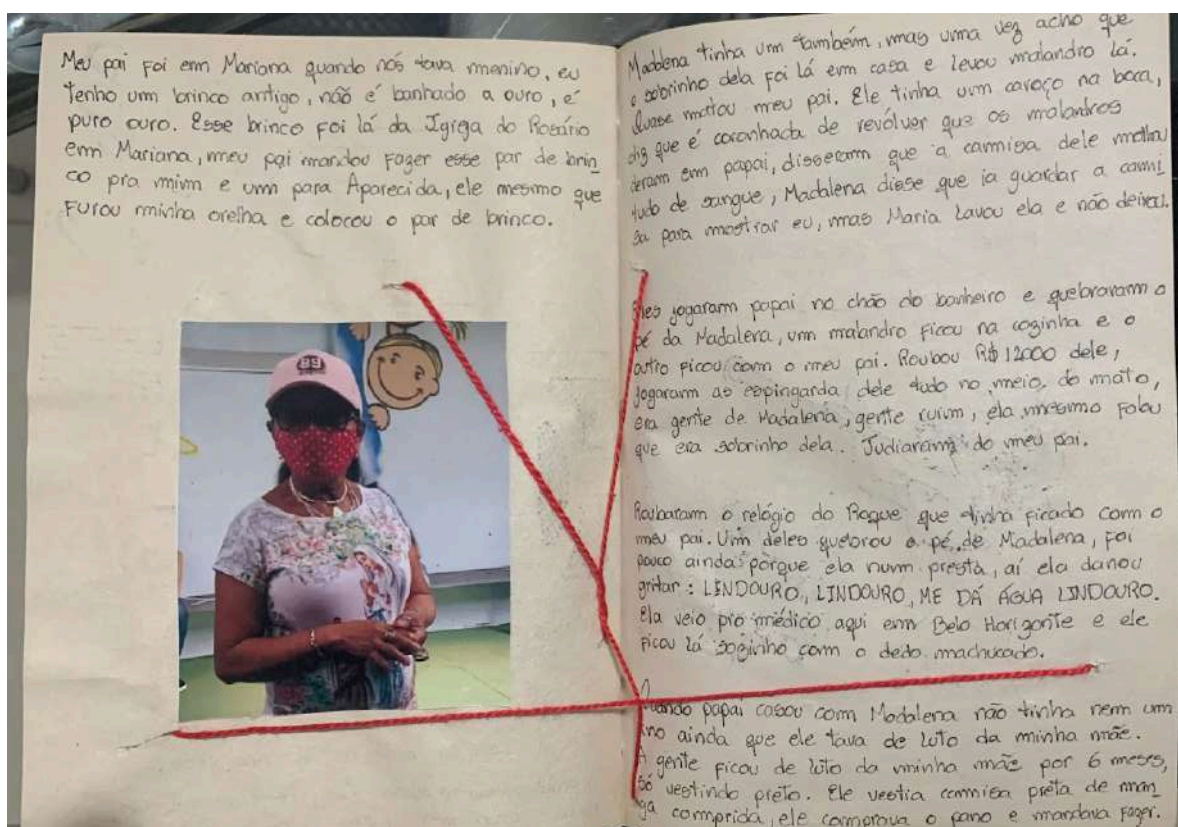 Meu pai foi em Mariana quando nós tava menino, eu
tenho um brinco antigo, não é banhado a ouro, é
puro ouro. Esse brinco foi lá da Igreja do Rosário
em Mariana, meu pai mandou fazer esse par de brin
co pra mim e um para Aparecida, ele mesmo que
furou minha orelha e colocou o par de brinco.
89
Madalena tinha um também, mas uma vez acho que
o sobrinho dela foi lá em casa e levou malandro lá.
Quase matou meu pai. Ele tinha um caroço na boca,
diz que é coronhada de revólver que os malandros
deram em papai, disseram que a camisa dele molhou
tudo de sangue, Madalena disse que ia guardar a cami
sa para mostrar eu, mas Maria lavou ela e não deixou.
Eles jogaram papai no chão do banheiro e quebraram o
pé da Madalena, um malandro ficou na cozinha e o
outro ficou com o meu pai. Roubou R$ 12000 dele,
jogaram as espingarda dele tudo no meio do mato,
era gente de Madalena, gente ruim, ela mesmo falou
que era sobrinho dela. Judiaram do meu pai.
Roubaram o relógio do Roque que tinha ficado com o
meu pai. Um deles quebrou o pé de Madalena, foi
pouco ainda porque ela num presta, aí ela danou
gritar: LINDOURO, LINDOURO, ME DÁ ÁGUA LINDOURO.
Ela veio pro médico aqui em Belo Horizonte e ele
ficou lá sozinho com o dedo machucado.
Quando papai casou com Madalena não tinha nem um
ano ainda que ele tava de luto da minha mãe.
A gente ficou de luto da minha mãe por 6 meses,
só vestindo preto. Ele vestia camisa preta de man
ga comprida, ele comprova o pano e mandava fazer.